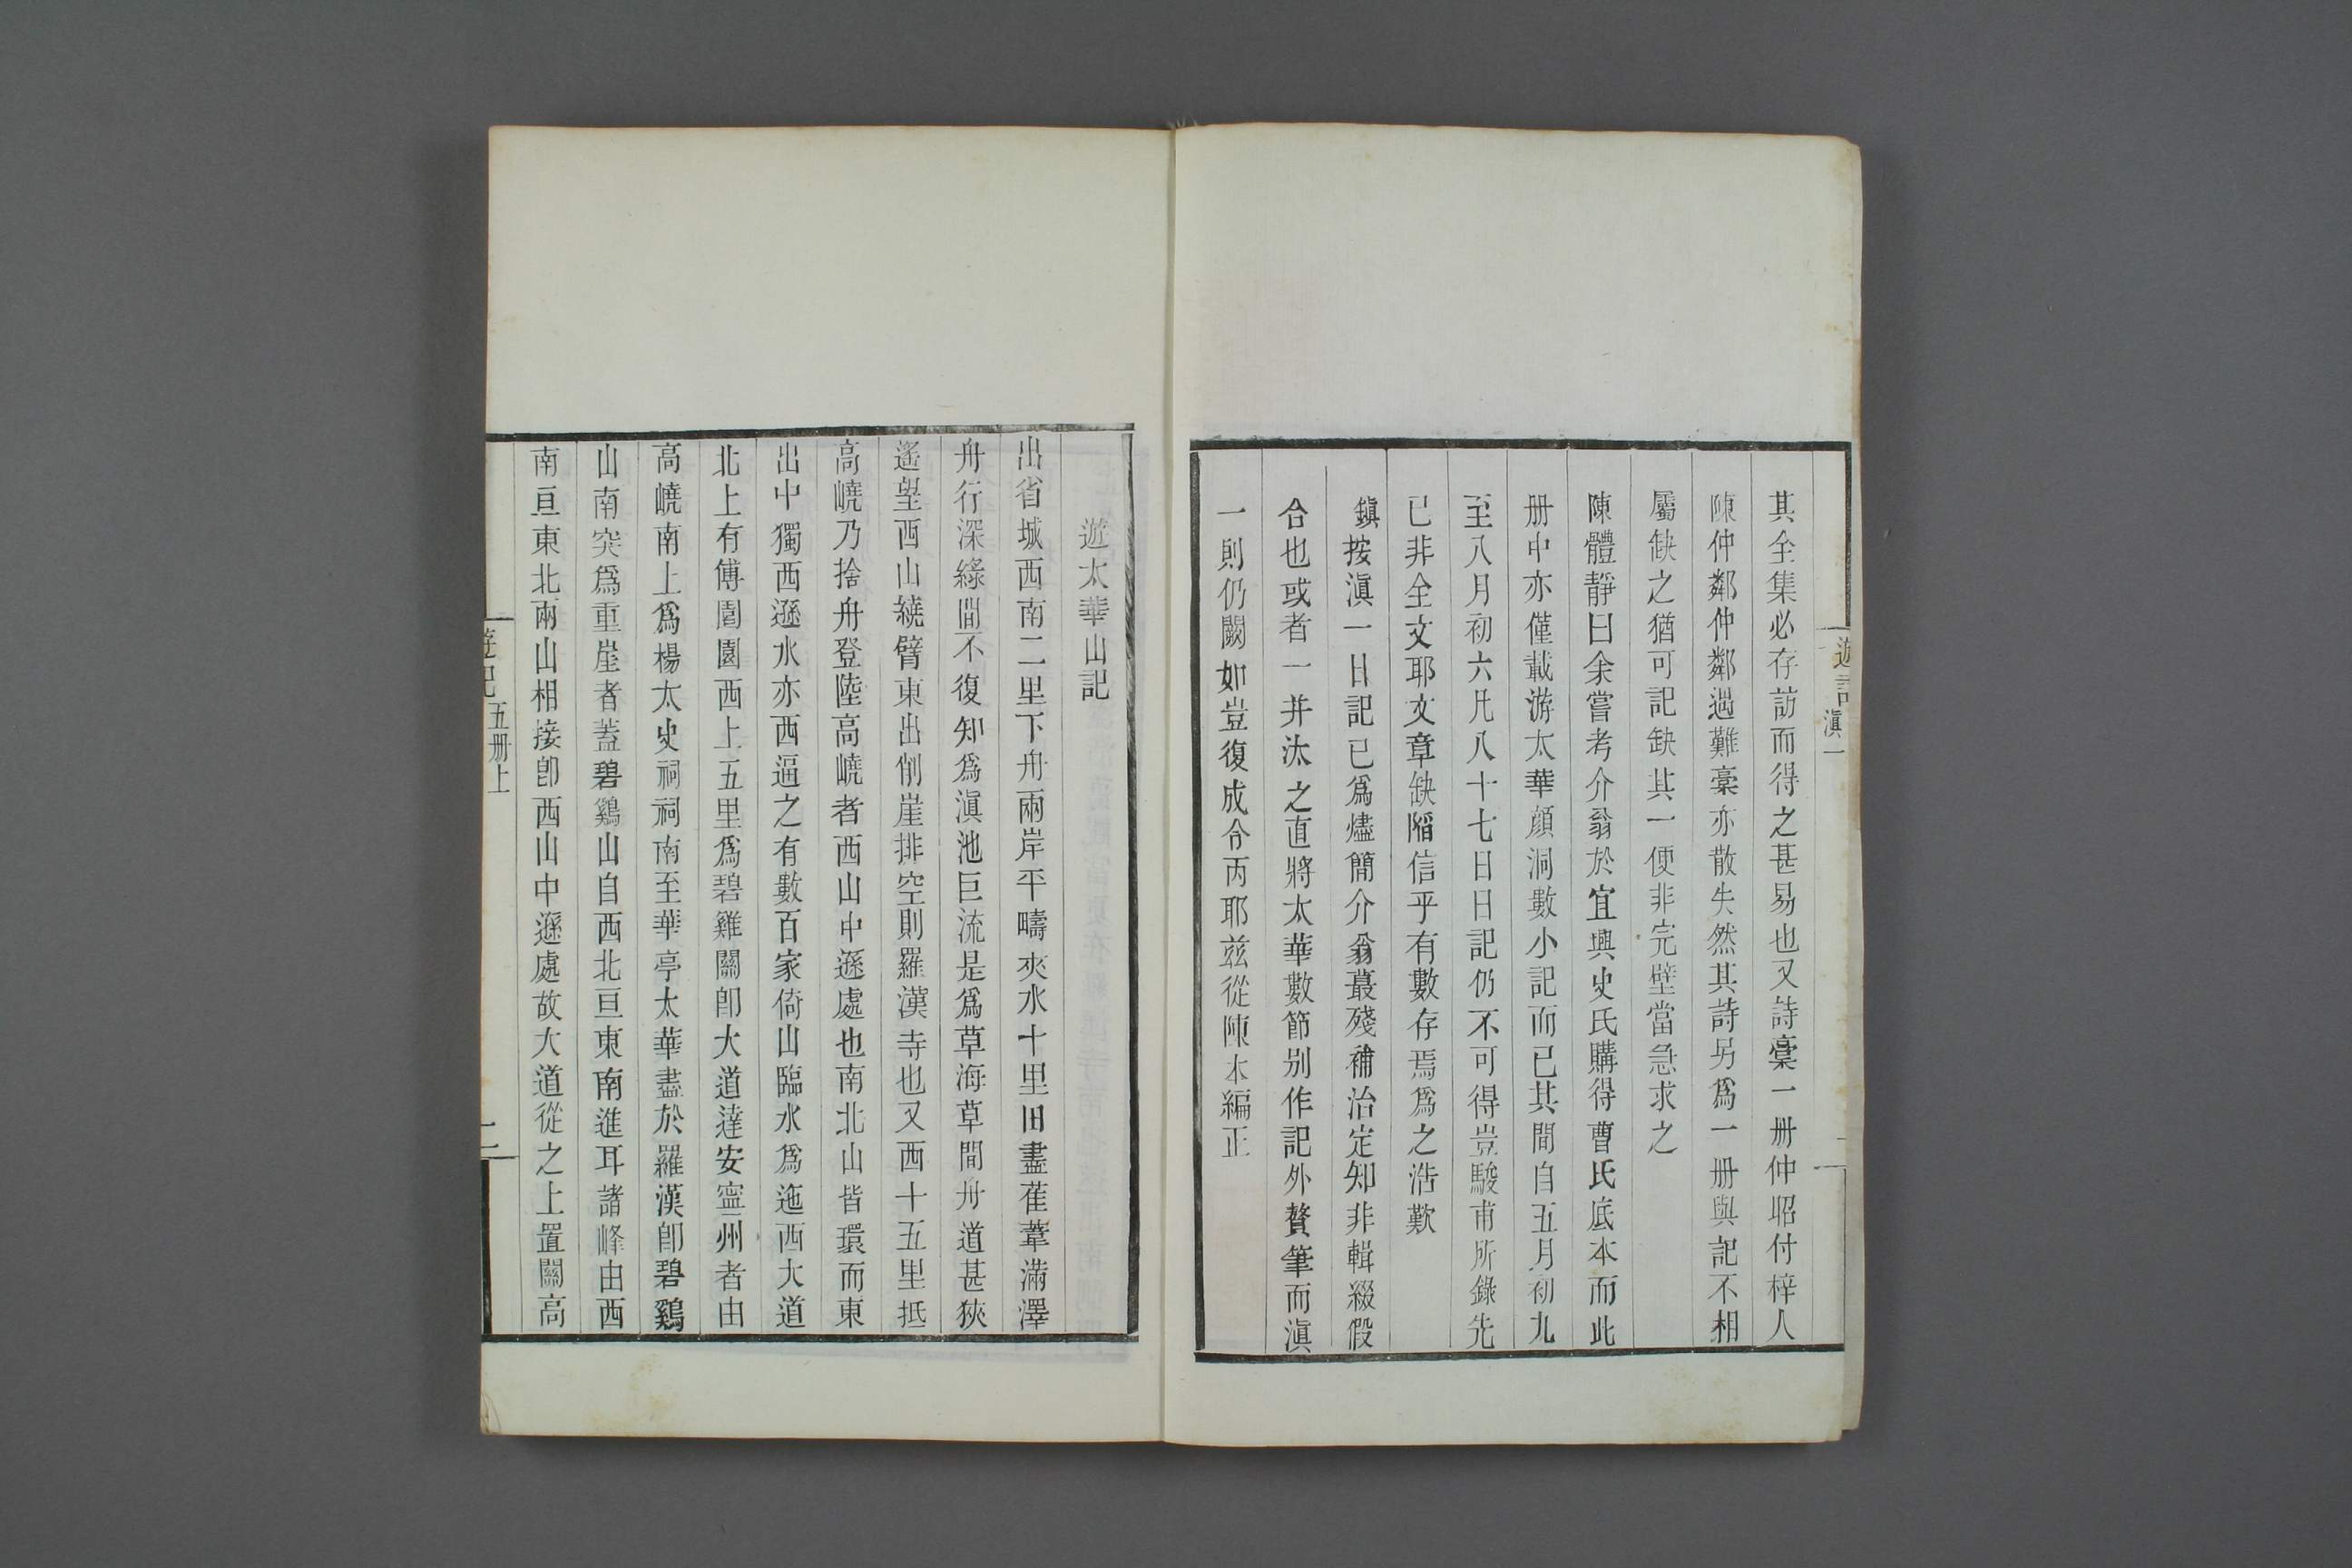 遊記 滇一
其全集必存訪而得之甚易也又詩稾一冊仲昭付梓人
陳仲鄰仲鄰遇難稾亦散失然其詩另爲一册與記不相
屬缺之猶可記缺其一便非完壁當急求之
陳體靜曰余嘗考介翁於宜興史氏購得曹氏底本而此
册中亦僅載游太華顔洞數小記而已其間自五月初九
至八月初六凡八十七日日記仍不可得豈駿甫所錄先
已非全文耶文章缺陷信乎有數存焉爲之浩歎
鎭按滇一日記已爲燼簡介翁蕞殘補治定知非輯綴假
合也或者一并汰之直將太華數節别作記外贅筆而滇
一則仍闕如豈復成令丙耶兹從陳本編正
遊太華山記
出省城西南二里下舟兩岸平疇夾水十里田盡萑葦滿澤
舟行深綠間不復知爲滇池巨流是爲草海草間舟道甚狹
遙望西山繞臂東出削崖排空則羅漢寺也又西十五里抵
高嶢乃捨舟登陸高嶢者西山中遜處也南北山皆環而東
出中獨西遜水亦西逼之有數百家倚山臨水爲迤西大道
北上有傅園園西上五里爲碧雞關卽大道達安寧州者由
高嶢南上爲楊太史祠祠南至華亭太華盡於羅漢卽碧鷄
山南突爲重崖者蓋碧鷄山自西北亘東南進耳諸峰由西
南亘東北兩山相接卽西山中遜處故大道從之上置關高
遊記 五册上 二